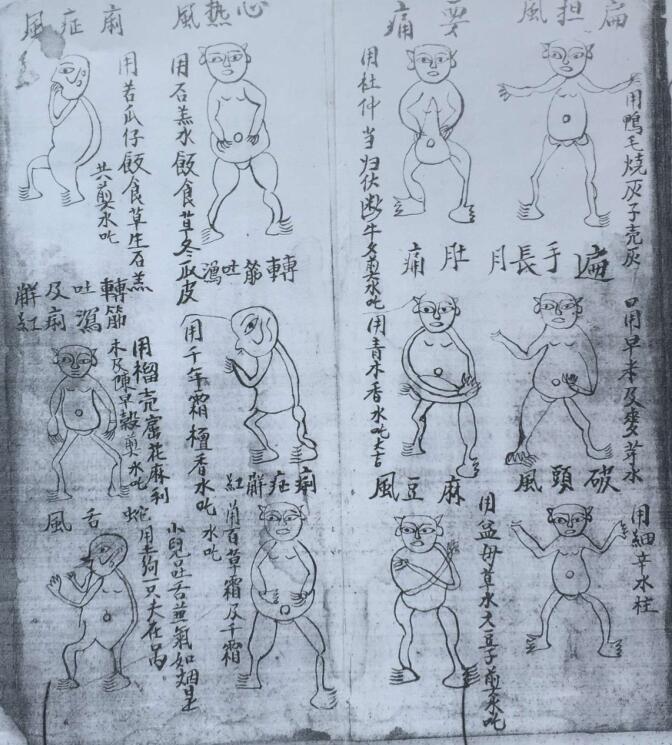 扁担風
用鴨毛燒灰子壳灰
要痛
用杜仲当归伏断牛夕煎水吃
心热風
用石羔水飯食草冬瓜皮
痢症風
用苦瓜仔飯食草生石羔
共煎水吃
遍手長月
用早米及麦芽水
肚痛
用青木香水吃
轉筋吐瀉
用千年霜檀香水吃
轉筋
吐瀉
及痢
解紅
用榴壳花麻利
米及陳早穀煎水吃
破頭風
用細辛水柱
麻豆風
用益母草水大豆子煎水吃
痢症解紅
用百草霜及千霜
水吃
舌風
小兒吐舌並氣如烟是
蛇用土狗一只夫在